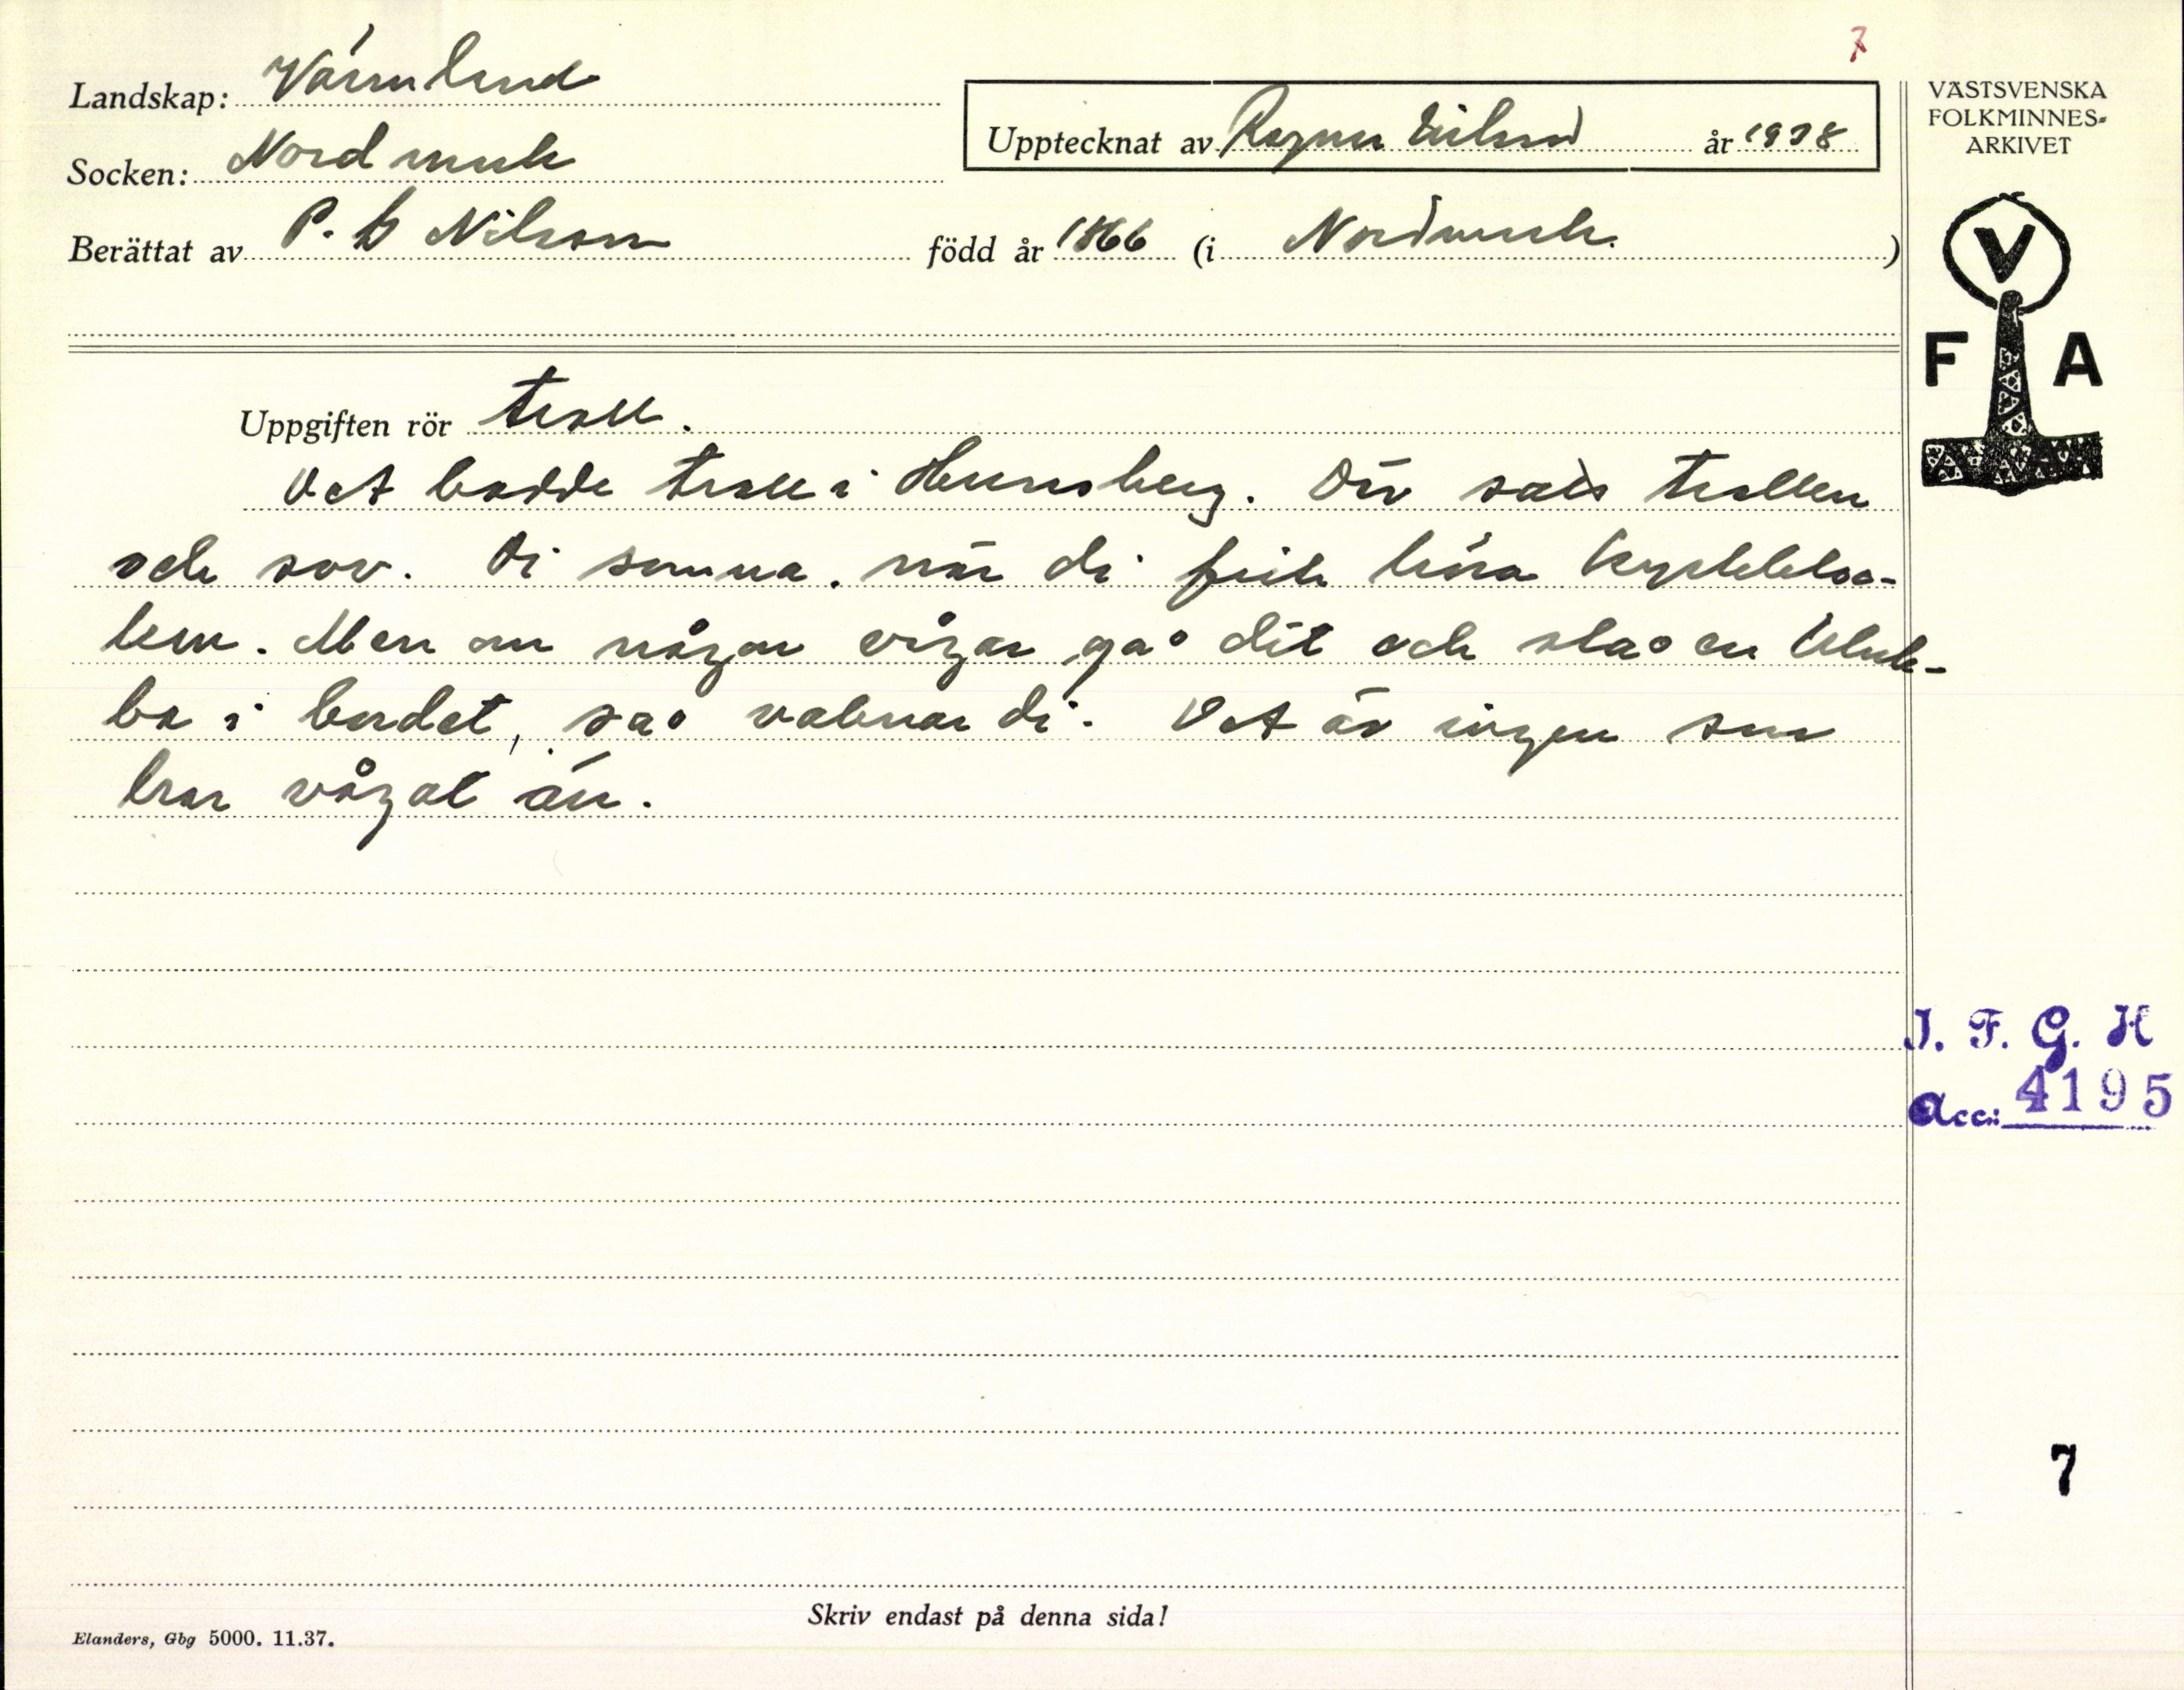 7
Landskap: Värmland
Socken: Nordmark
Upptecknat av Ragnar Nilsson år 1938
Berättat av P. G Nilsson född år 1866 (i Nordmark.)
VÄSTSVENSKA
FOLKMINNES-
ARKIVET
V
F A
Uppgiften rör troll.
Det bodde troll i Hennsberg. Där satt trollen
och sov. Di somna, när di fick höra kyrkkloc-
kera. Men om någon vågar gå dit och slå en klub-
ba i bordet, så vaknar di. Det är ingen som
har vågat än.
I. F. G. H
Acc: 4195
7
Skriv endast på denna sida!
Elanders, Gbg 5000. 11.37.